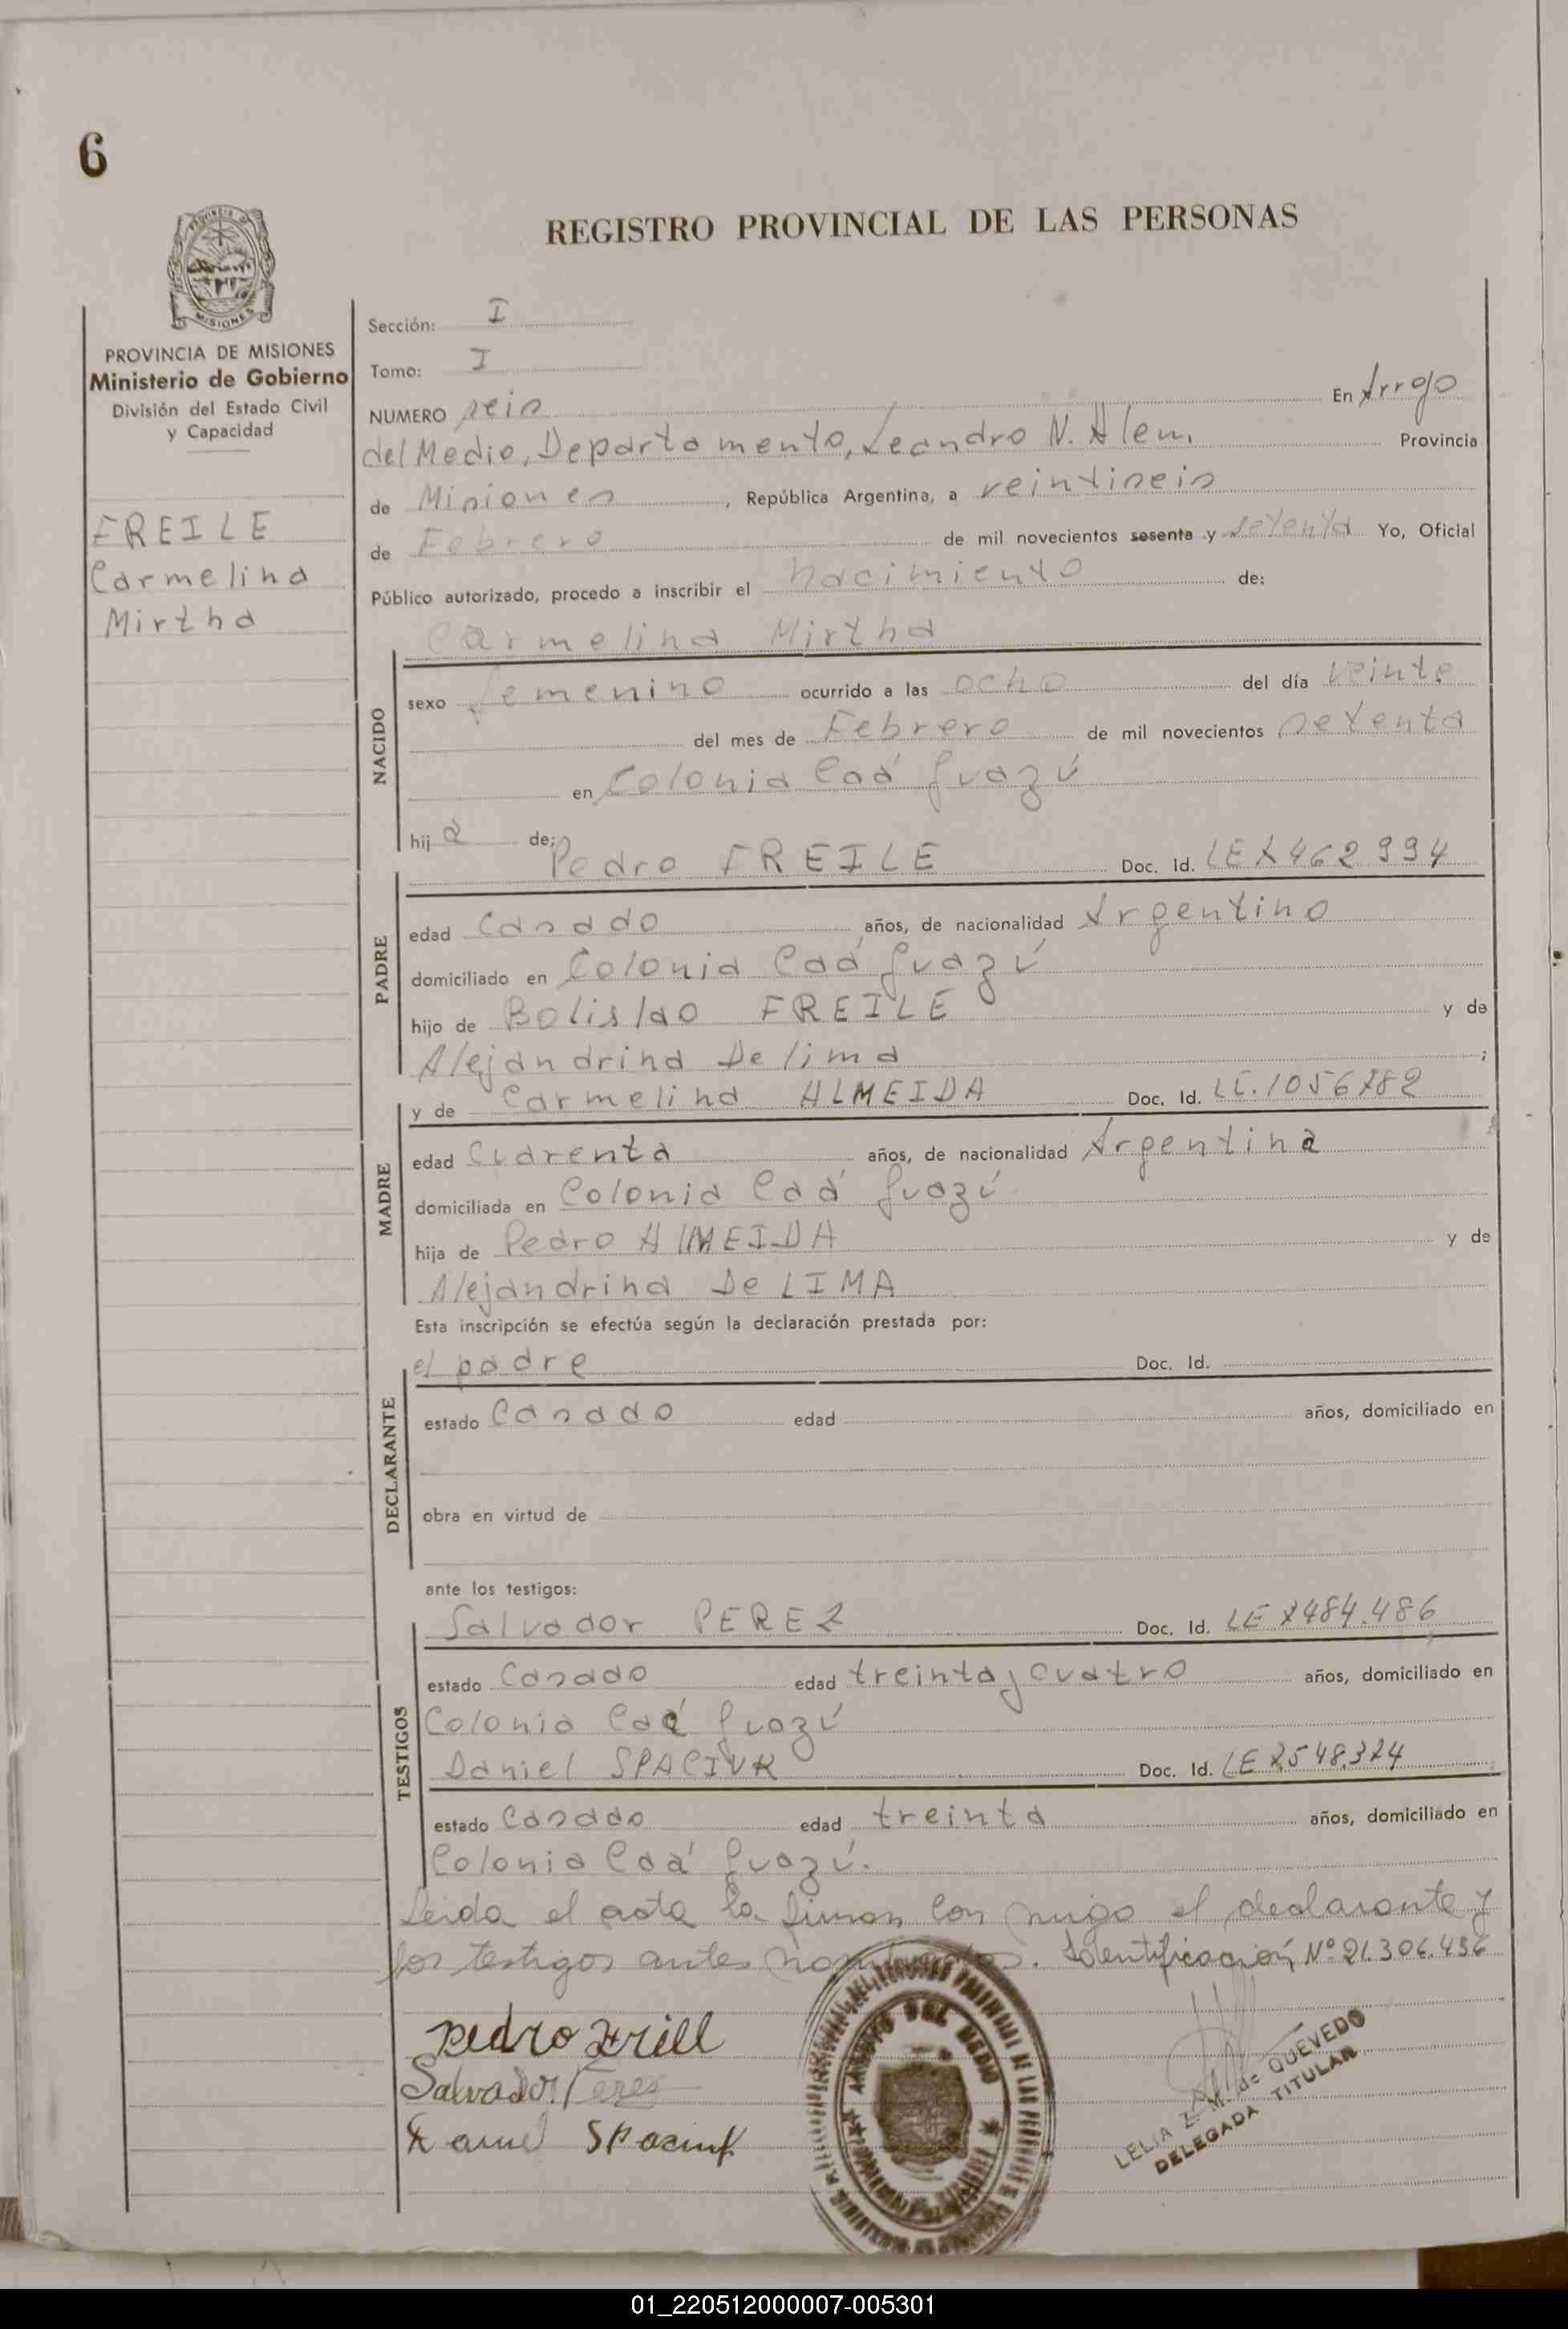 6
REGISTRO PROVINCIAL DE LAS PERSONAS
PROVINCIA DE MISIONES
Ministerio de Gobierno
División del Estado Civil
y Capacidad
FREILE
Carmelina
Mirtha
Sección: I
Tomo: I
NUMERO seis En Arroyo
del Medio, Departamento, Leandro N. Alem, Provincia
de Misiones, República Argentina, a veintiseis
de Febrero de mil novecientos sesenta y setenta Yo, Oficial
Público autorizado, procedo a inscribir el nacimiento de:
Carmelina Mirtha
NACIDO
sexo femenino ocurrido a las ocho del día veinte
del mes de Febrero de mil novecientos setenta
en Colonia Caá Guazú
hija de: Pedro FREILE Doc. Id. LE 7462994
PADRE
edad Casado años, de nacionalidad Argentino
domiciliado en Colonia Caá Guazú
hijo de Bolislao FREILE y de
Alejandrina De lima ;
y de Carmelina ALMEIDA Doc. Id. LC.1056782
MADRE
edad Cuarenta años, de nacionalidad Argentina
domiciliada en Colonia Caá Guazú
hija de Pedro AlMEIDA y de
Alejandrina De LIMA
Esta inscripción se efectúa según la declaración prestada por:
el padre Doc. Id.
DECLARANTE
estado Casado edad años, domiciliado en
obra en virtud de
ante los testigos:
Salvador PEREZ Doc. Id. LE 7484.486
TESTIGOS
estado Casado edad treinta y cuatro años, domiciliado en
Colonia Caá Guazú
Daniel SPACIUK Doc. Id. LE 7548.374
estado Casado edad treinta años, domiciliado en
Colonia Caá Guazú.
Leida el acta la firman con migo el declarante y
los testigos antes nombrados. Identificación Nº 21.306.436
Pedro Frill
Salvador Perez
Daniel Spaciuk
ARROYO DEL MEDIO
LELIA Z. M. de QUEVEDO
DELEGADA TITULAR
01_220512000007-005301